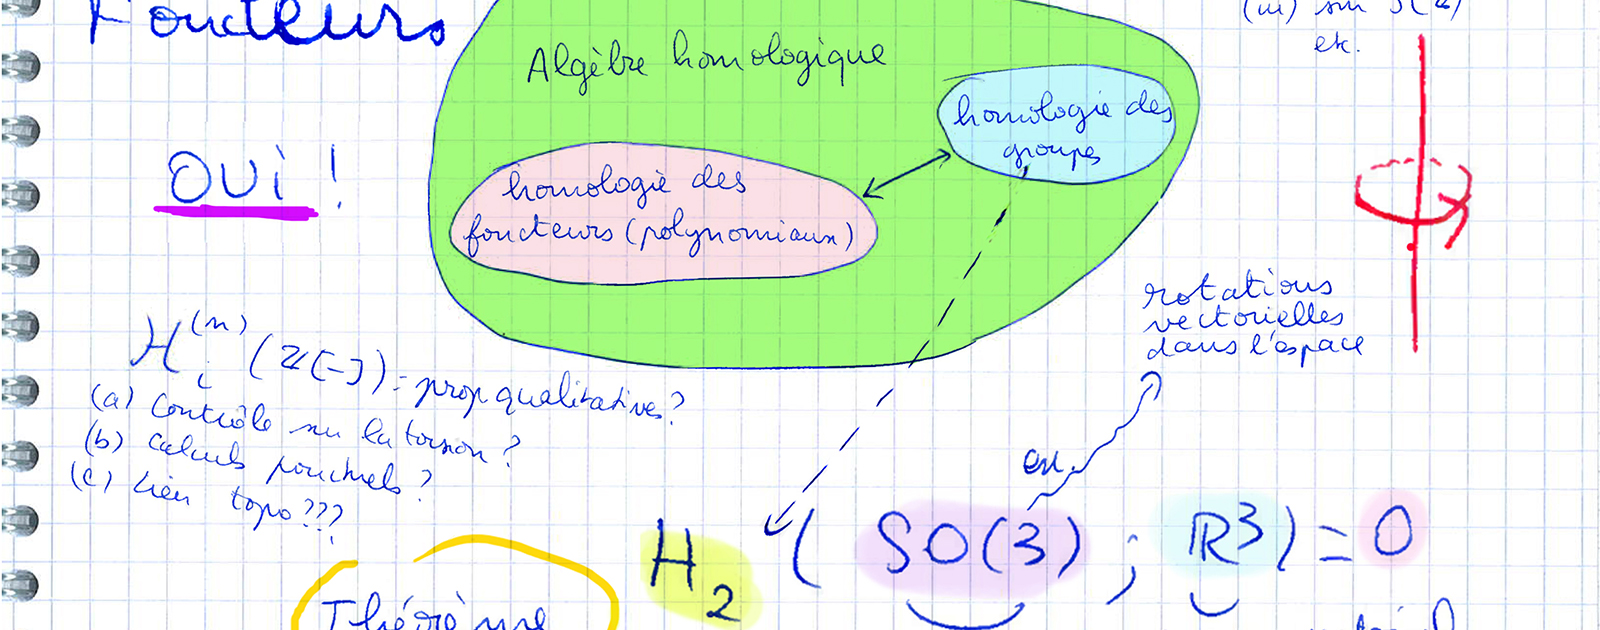 Foncteurs
(iii) sur
etc.
Algèbre homologique
homologie des
groupes
OUI !
homologie des
foncteurs (polynomiaux)
rotations
vectorielles
dans l'espace
H_i^(n) (Z[-]) : prop qualitatives ?
(a) Contrôle sur la torsion ?
(b) Calculs ponctuels ?
(c) Lien topo ???
H_2 ( SO(3) ; R^3 ) = 0
Théorème